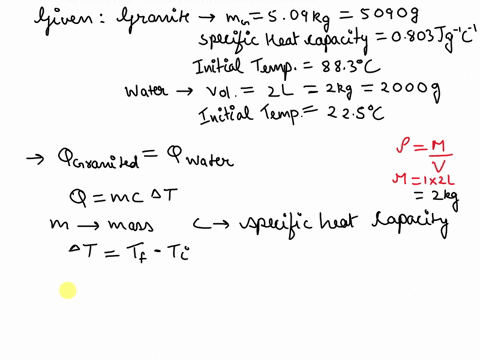 Given: Granite → m = 5.09kg = 5090g
Specific Heat Capacity = 0.803Jg⁻¹C⁻¹
Initial Temp. = 88.3°C
Water → Vol. = 2L = 2kg = 2000g
Initial Temp. = 22.5°C
→ QGranited = QWater
ρ = M/V
M = 1×2L
= 2kg
Q = mc ΔT
m → mass C → Specific heat Capacity
ΔT = Tf - Ti